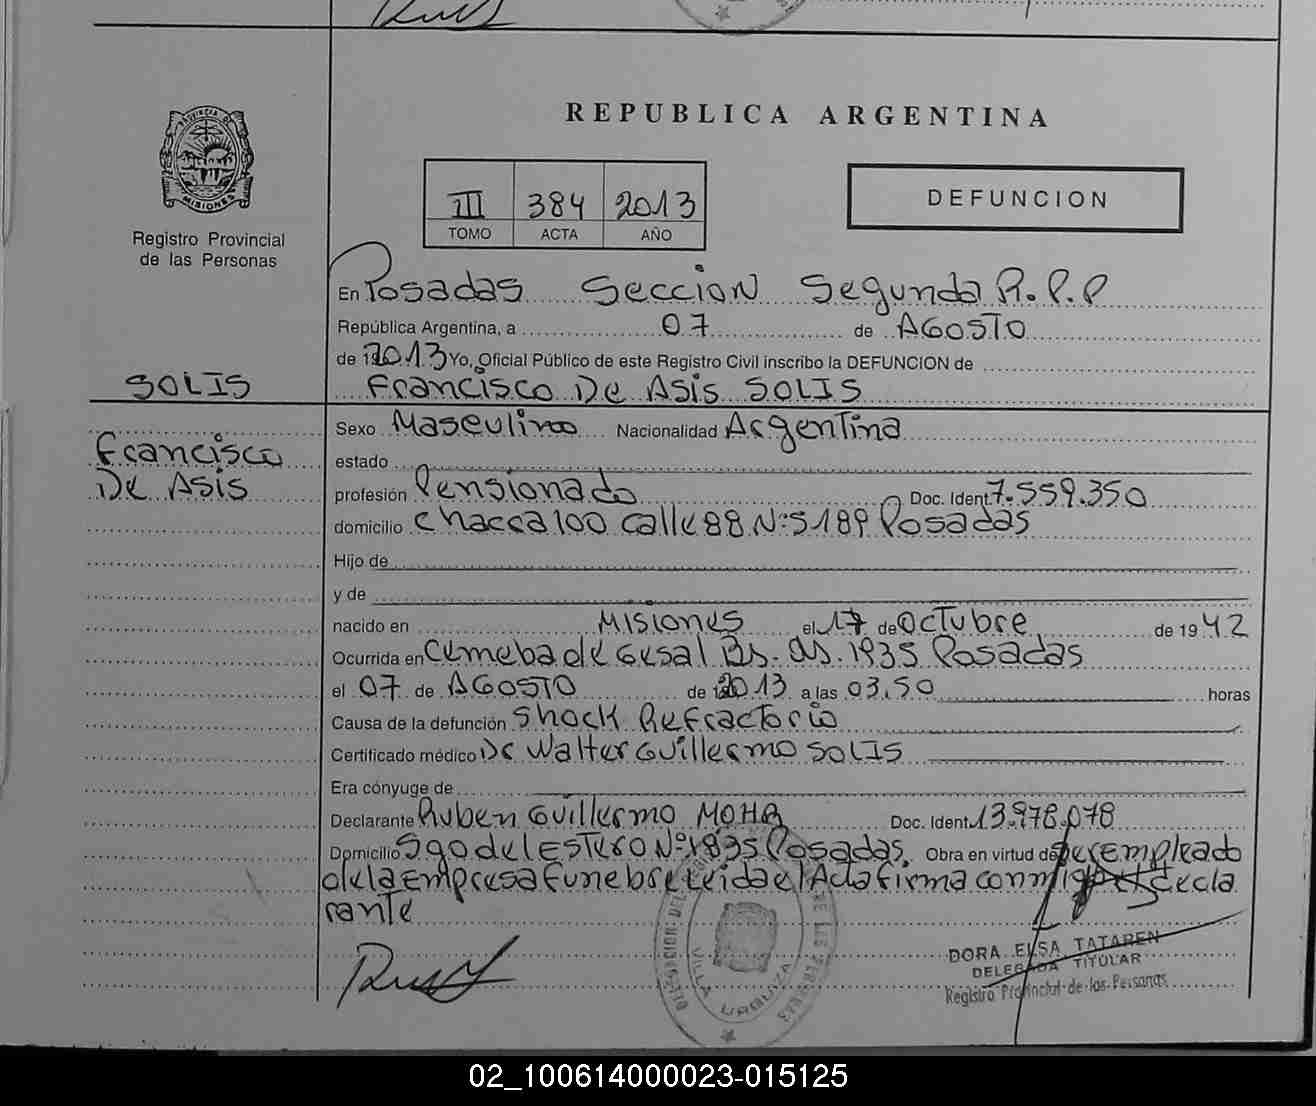 REPUBLICA ARGENTINA
PROVINCIA DE
MISIONES
Registro Provincial
de las Personas
III 384 2013
TOMO ACTA AÑO
DEFUNCION
En Posadas Seccion Segunda R.P.P
República Argentina, a 07 de AGOSTO
de 2013 Yo, Oficial Público de este Registro Civil inscribo la DEFUNCION de
SOLIS Francisco De Asis SOLIS
Francisco
De Asis
Sexo Masculino Nacionalidad Argentina
estado
profesión Pensionado Doc. Ident. 7.559.350
domicilio Chacra 100 Calle 88 Nº 5189 Posadas
Hijo de
y de
nacido en Misiones el 17 de Octubre de 1942
Ocurrida en Cemeba de Gesal Bs. As. 1935 Posadas
el 07 de AGOSTO de 2013 a las 03.50 horas
Causa de la defunción Shock Refractorio
Certificado médico Dr Walter Guillermo SOLIS
Era cónyuge de
Declarante Ruben Guillermo MOHR Doc. Ident. 13.978.078
Domicilio Sgo del Estero Nº 1835 Posadas. Obra en virtud de ser Empleado
de la Empresa Funebre Leida el Acta firma conmigo el Decla
rante
VILLA URQUIZA
DORA ELSA TATAREN
DELEGADA TITULAR
Registro Provincial de las Personas
02_100614000023-015125